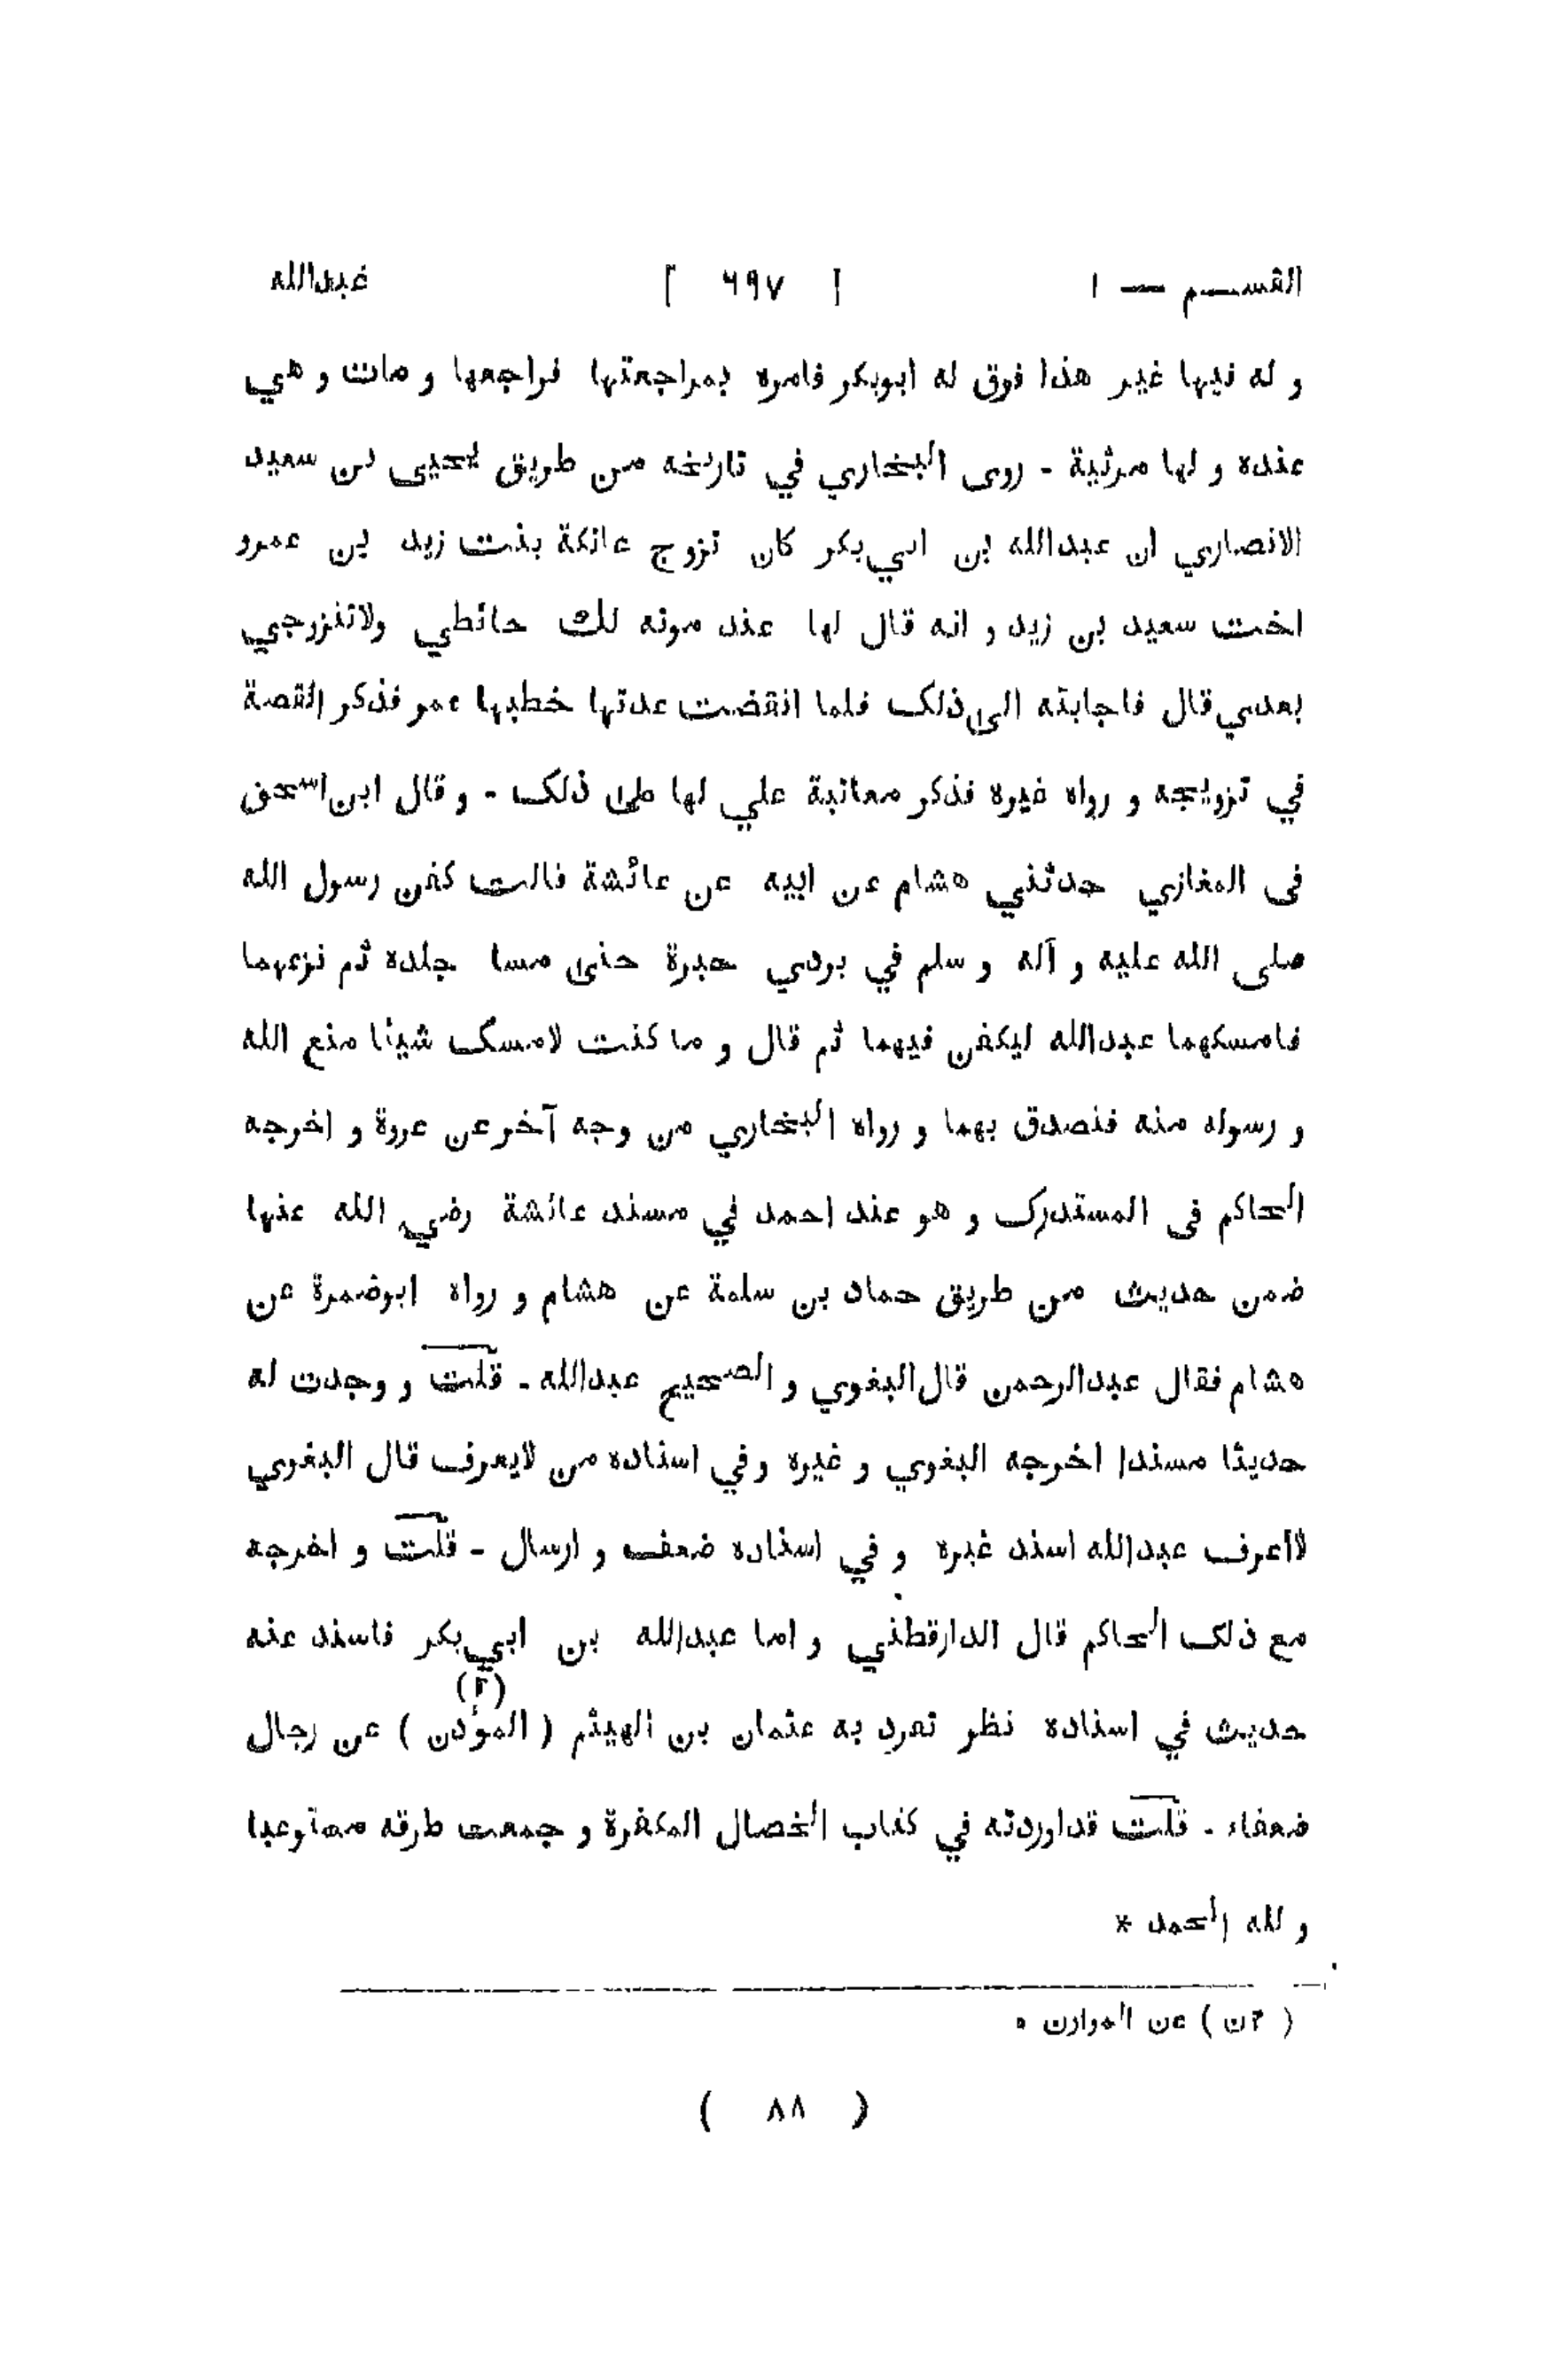 القسم — ١ [ ٦٩٧ ] عبدالله
و له فيها غير هذا فرق له ابوبكر فامره بمراجعتها فراجعها و مات و هي
عنده و لها مرثية - روى البخاري في تاريخه من طريق يحيى بن سعيد
الانصاري ان عبدالله بن ابي بكر كان تزوج عاتكة بنت زيد بن عمرو
اخت سعيد بن زيد و انه قال لها عند موته لك حائطي ولاتتزوجي
بعدي قال فاجابته الى ذلك فلما انقضت عدتها خطبها عمر فذكر القصة
في تزويجه و رواه غيره فذكر معاتبة علي لها على ذلك - و قال ابن اسحق
فى المغازي حدثني هشام عن ابيه عن عائشة قالت كفن رسول الله
صلى الله عليه و آله و سلم في بردي حبرة حتى مسا جلده ثم نزعهما
فامسكهما عبدالله ليكفن فيهما ثم قال و ما كنت لامسك شيئا منع الله
و رسوله منه فتصدق بهما و رواه البخاري من وجه آخر عن عروة و اخرجه
الحاكم فى المستدرك و هو عند احمد في مسند عائشة رضي الله عنها
ضمن حديث من طريق حماد بن سلمة عن هشام و رواه ابوضمرة عن
هشام فقال عبدالرحمن قال البغوي و الصحيح عبدالله - قلت و وجدت له
حديثا مسندا اخرجه البغوي و غيره و في اسناده من لايعرف قال البغوي
لااعرف عبدالله اسند غيره و في اسناده ضعف و ارسال - قلت و اخرجه
مع ذلك الحاكم قال الدارقطني و اما عبدالله بن ابي بكر فاسند عنه
حديث في اسناده نظر تفرد به عثمان بن الهيثم ( المؤذن ) (٢) عن رجال
ضعفاء - قلت قد اوردته في كتاب الخصال المكفرة و جمعت طرقه مستوعبا
و لله الحمد *
( ٢ن ) عن الموازن *
( ٨٨ )